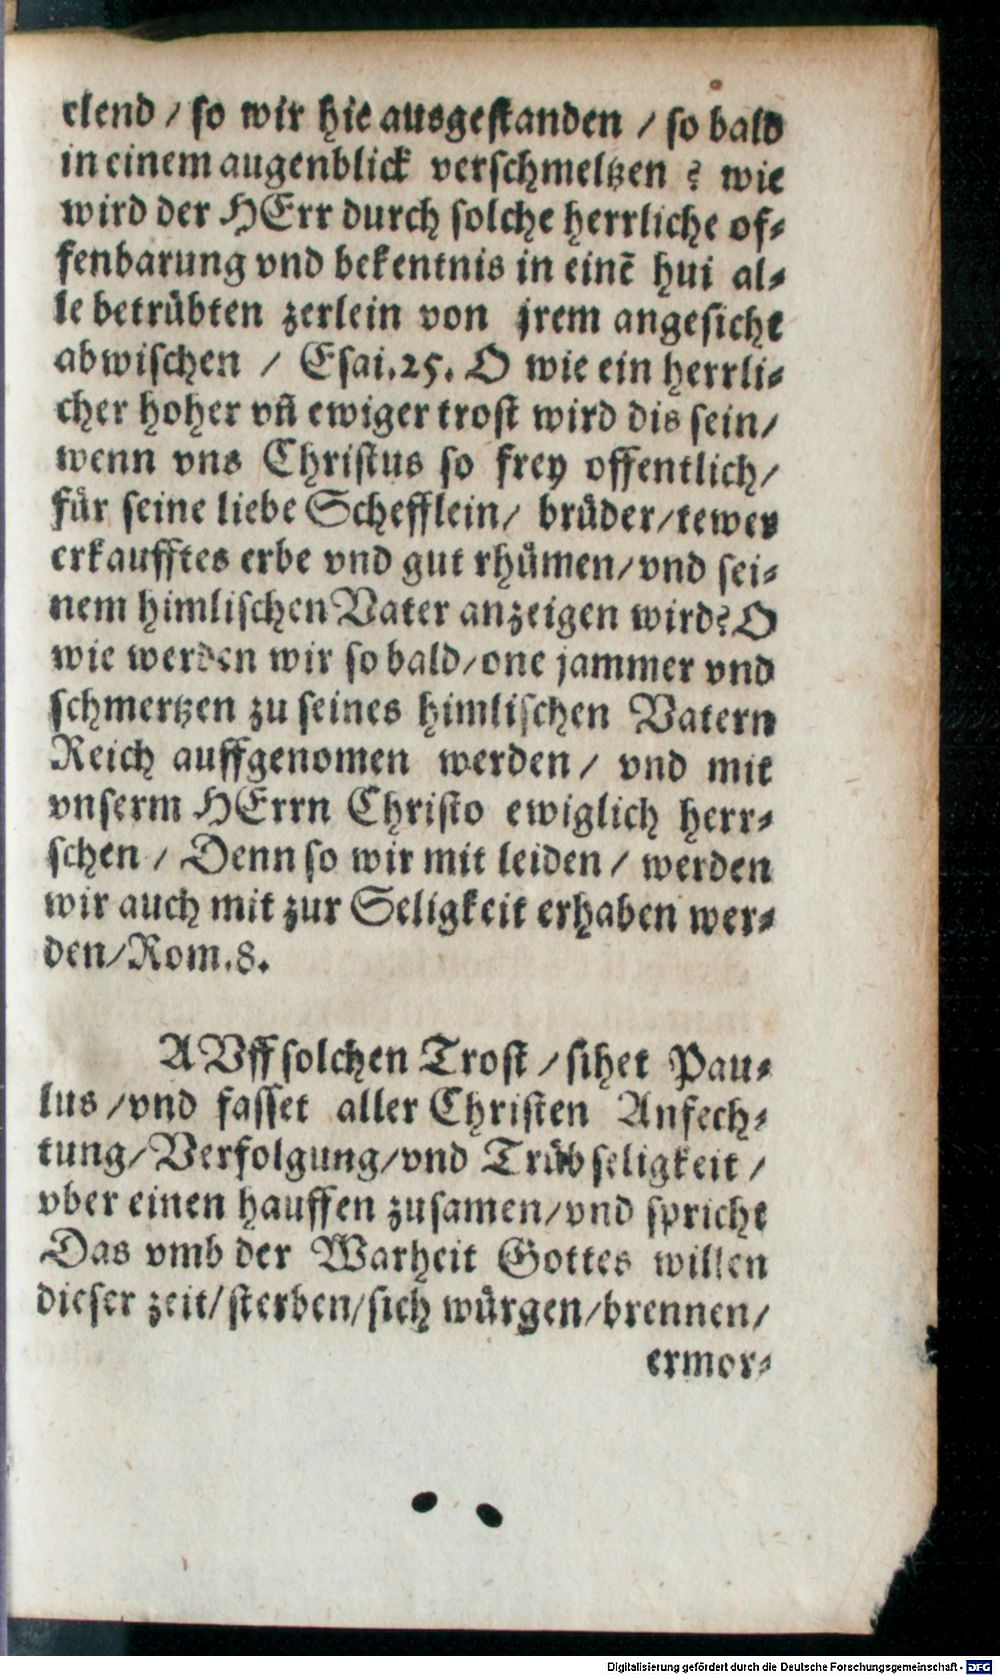 elend / so wir hie ausgestanden / so bald
in einem augenblick verschmeltzen ? wie
wird der HErr durch solche herrliche of-
fenbarung vnd bekentnis in einē hui al-
le betrübten zerlein von jrem angesicht
abwischen / Esai.25. O wie ein herrli-
cher hoher vn̄ ewiger trost wird dis sein/
wenn vns Christus so frey offentlich/
für seine liebe Schefflein/ brüder/tewer
erkaufftes erbe vnd gut rhümen/vnd sei-
nem himlischen Vater anzeigen wird?O
wie werden wir so bald/one jammer vnd
schmertzen zu seines himlischen Vatern
Reich auffgenomen werden/ vnd mit
vnserm HErrn Christo ewiglich herr-
schen / Denn so wir mit leiden/ werden
wir auch mit zur Seligkeit erhaben wer-
den/Rom.8.
AVff solchen Trost /sihet Pau-
lus /vnd fasset aller Christen Anfech-
tung/Verfolgung/vnd Trübseligkeit /
vber einen hauffen zusamen/vnd spricht
Das vmb der Warheit Gottes willen
dieser zeit/sterben/sich würgen/brennen/
ermor-
Digitalisierung gefördert durch die Deutsche Forschungsgemeinschaft - DFG